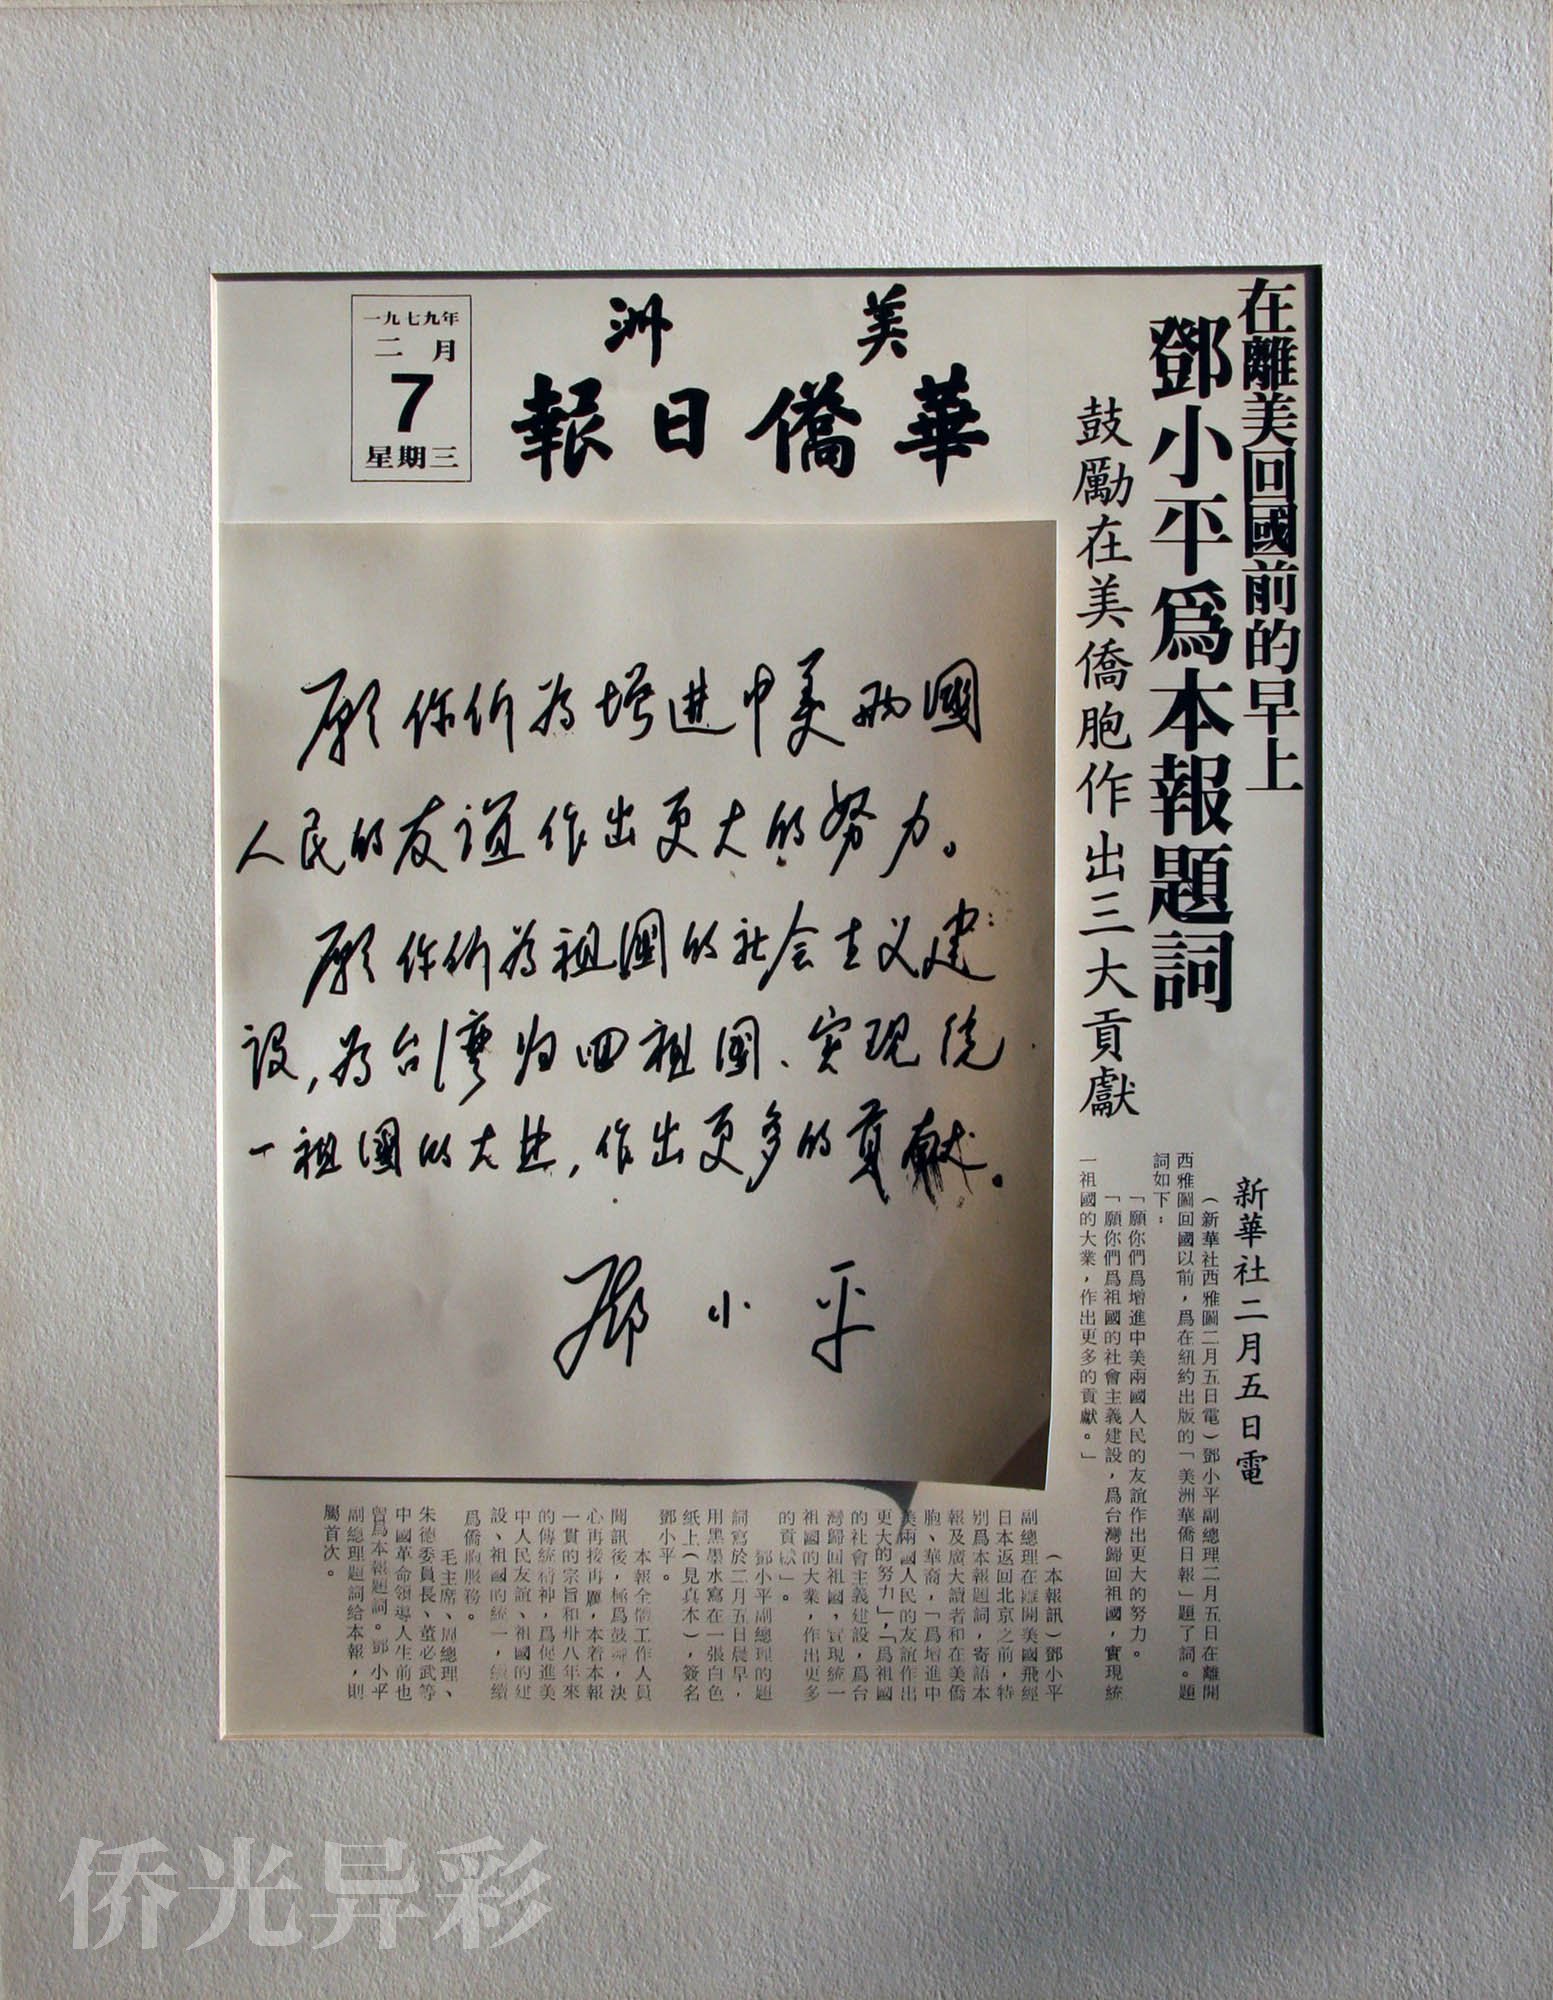 在離美回國前的早上
鄧小平爲本報題詞
鼓勵在美僑胞作出三大貢獻
美洲
華僑日報
一九七九年
二月
7
星期三
新華社二月五日電
（新華社西雅圖二月五日電）鄧小平副總理二月五日在離開
西雅圖回國以前，爲在紐約出版的「美洲華僑日報」題了詞。題
詞如下：
「願你們爲增進中美兩國人民的友誼作出更大的努力。
「願你們爲祖國的社會主義建設，爲台灣歸回祖國，實現統
一祖國的大業，作出更多的貢獻。」
愿你们为增进中美两國
人民的友谊作出更大的努力。
愿你们为祖國的社会主义建
设，为台湾归回祖國、实现统
一祖國的大业，作出更多的贡献。
鄧小平
（本報訊）鄧小平
副總理在離開美國飛經
日本返回北京之前，特
別爲本報題詞，寄語本
報及廣大讀者和在美僑
胞、華裔，「爲增進中
美兩國人民的友誼作出
更大的努力」，「爲祖國
的社會主義建設，爲台
灣歸回祖國，實現統一
祖國的大業，作出更多
的貢獻」。
鄧小平副總理的題
詞寫於二月五日晨早，
用黑墨水寫在一張白色
纸上（見真本），簽名
鄧小平。
本報全體工作人員
聞訊後，極爲鼓舞，決
心再接再厲，本着本報
一貫的宗旨和卅八年來
的傳統精神，爲促進美
中人民友誼、祖國的建
設、祖國的統一，繼續
爲僑胞服務。
毛主席、周總理、
朱德委員長、董必武等
中國革命領導人生前也
曾爲本報題詞。鄧小平
副總理題詞給本報，則
屬首次。
侨光异彩